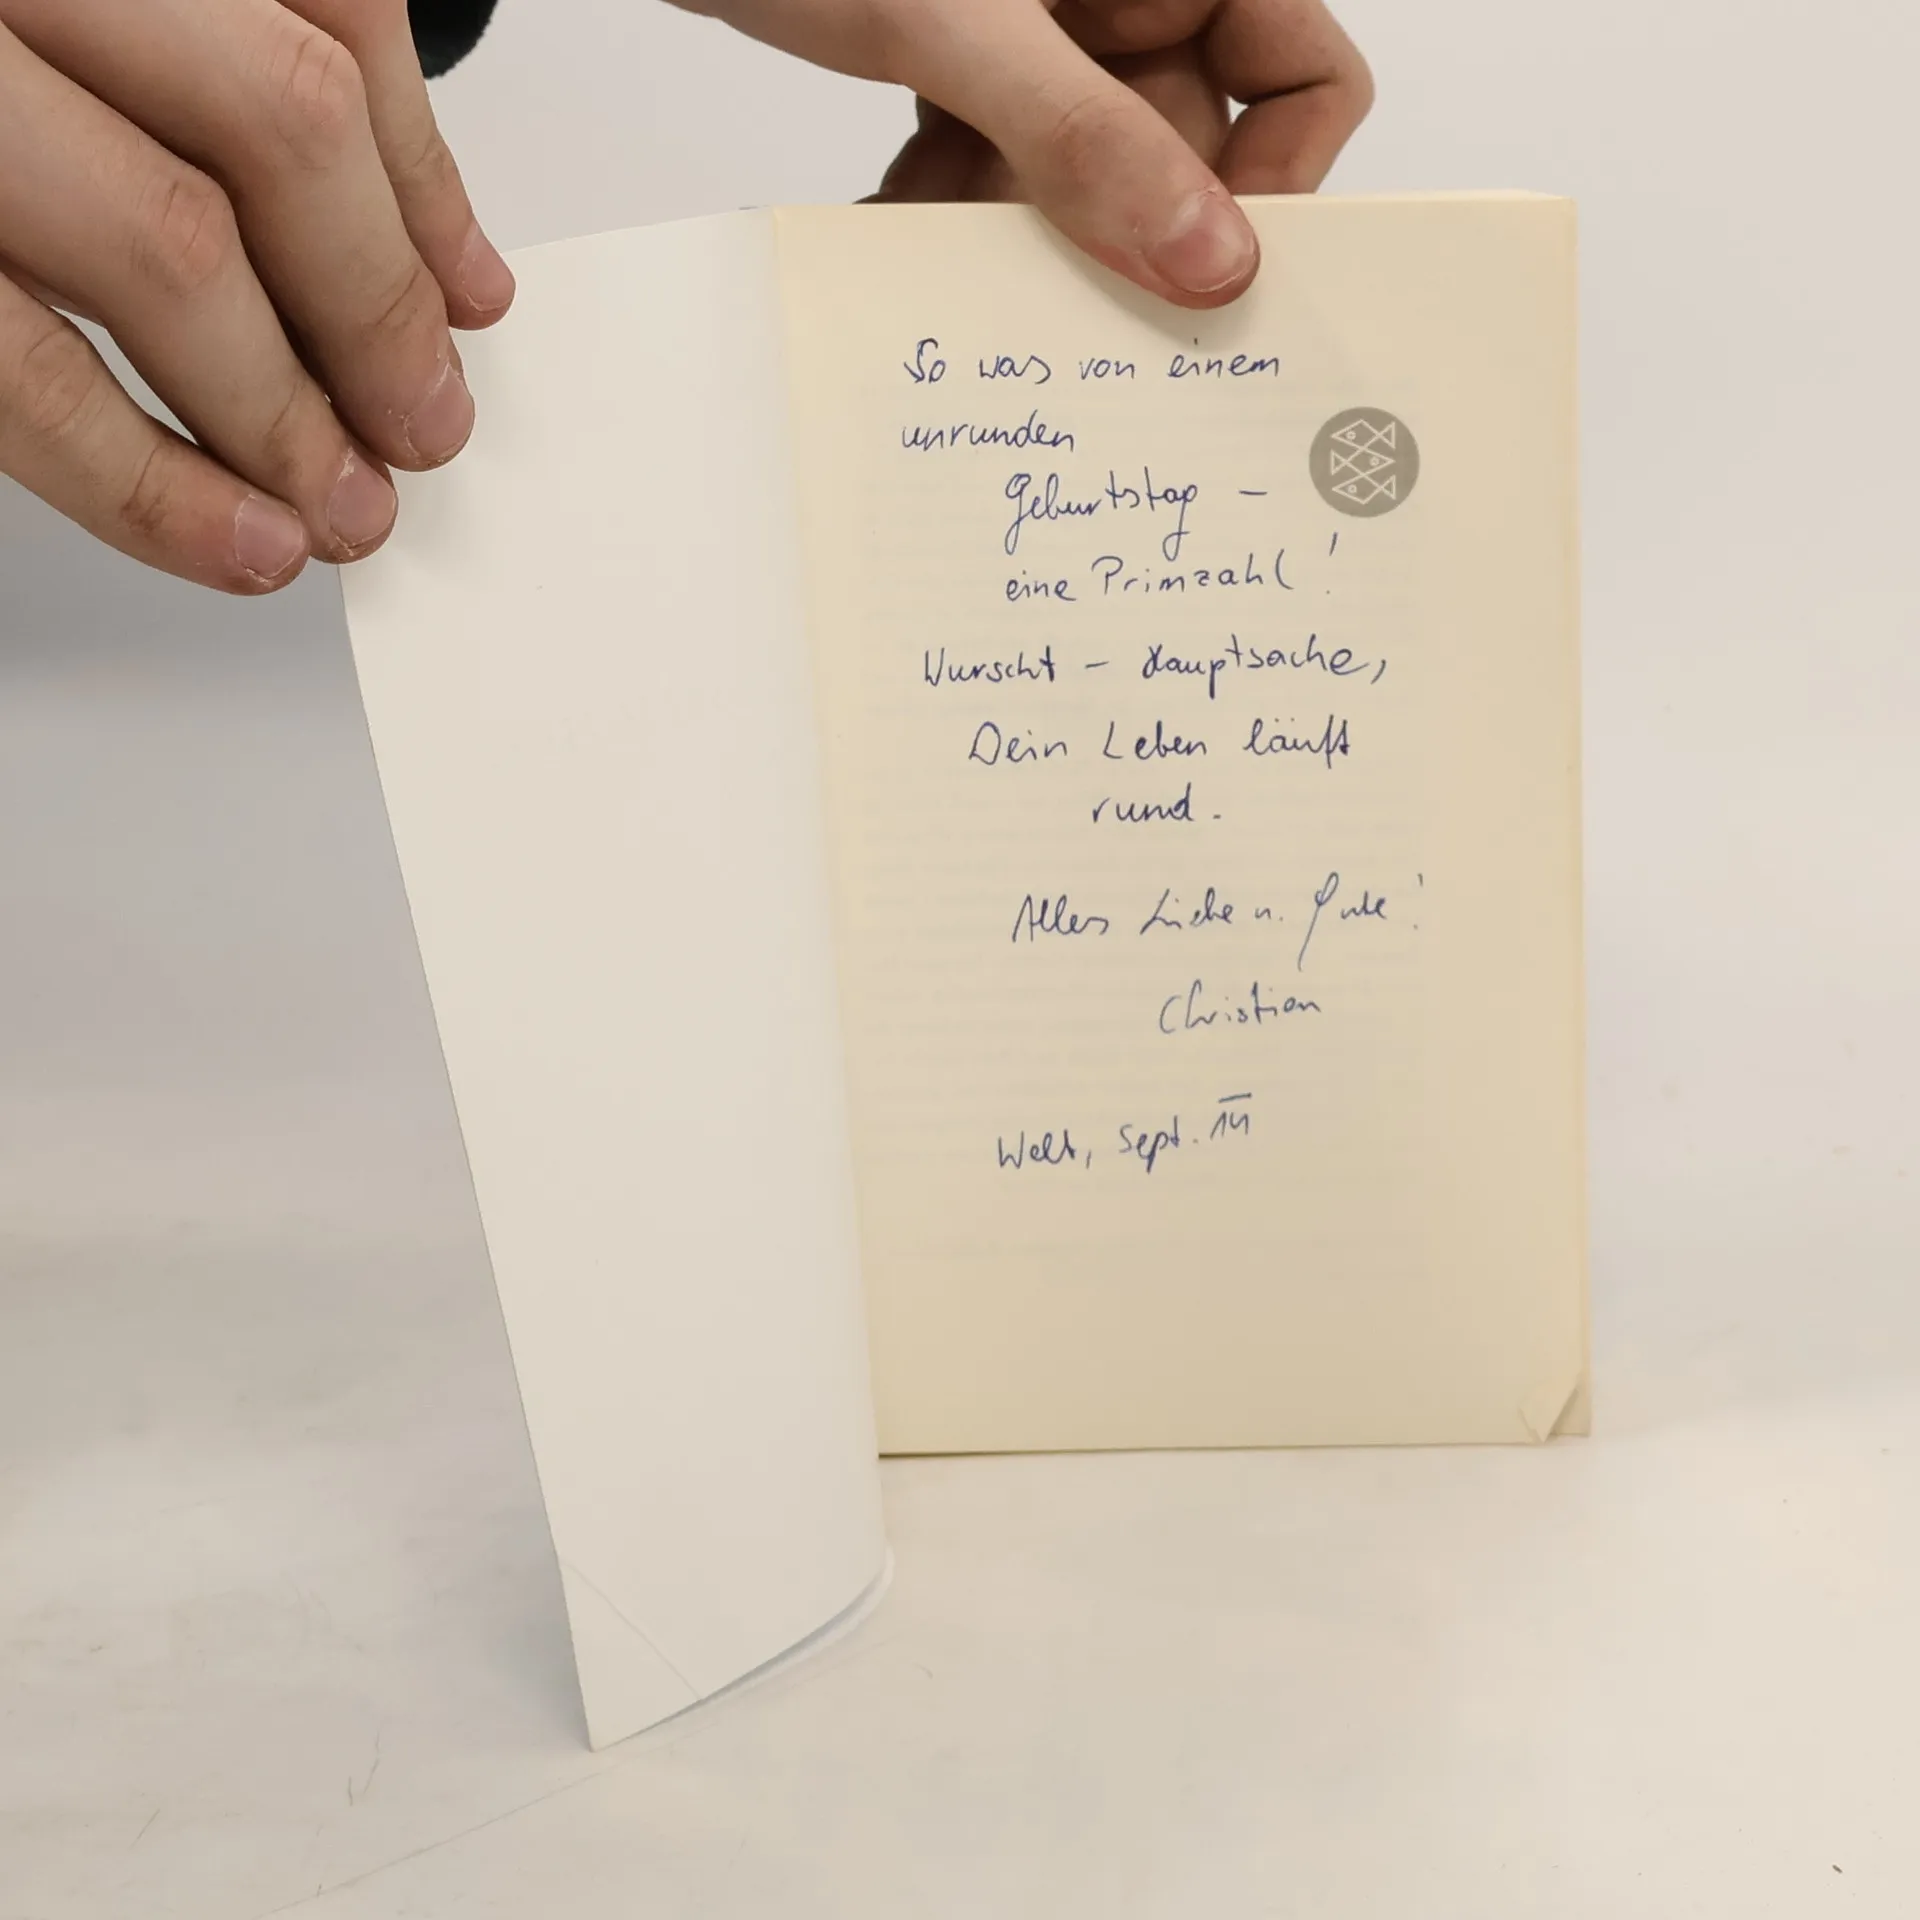 So was von einem
unrunden
Geburtstag –
eine Primzahl!
Wurscht – Hauptsache,
Dein Leben läuft
rund.
Alles Liebe u. Gute!
Christian
Welt, Sept. 14